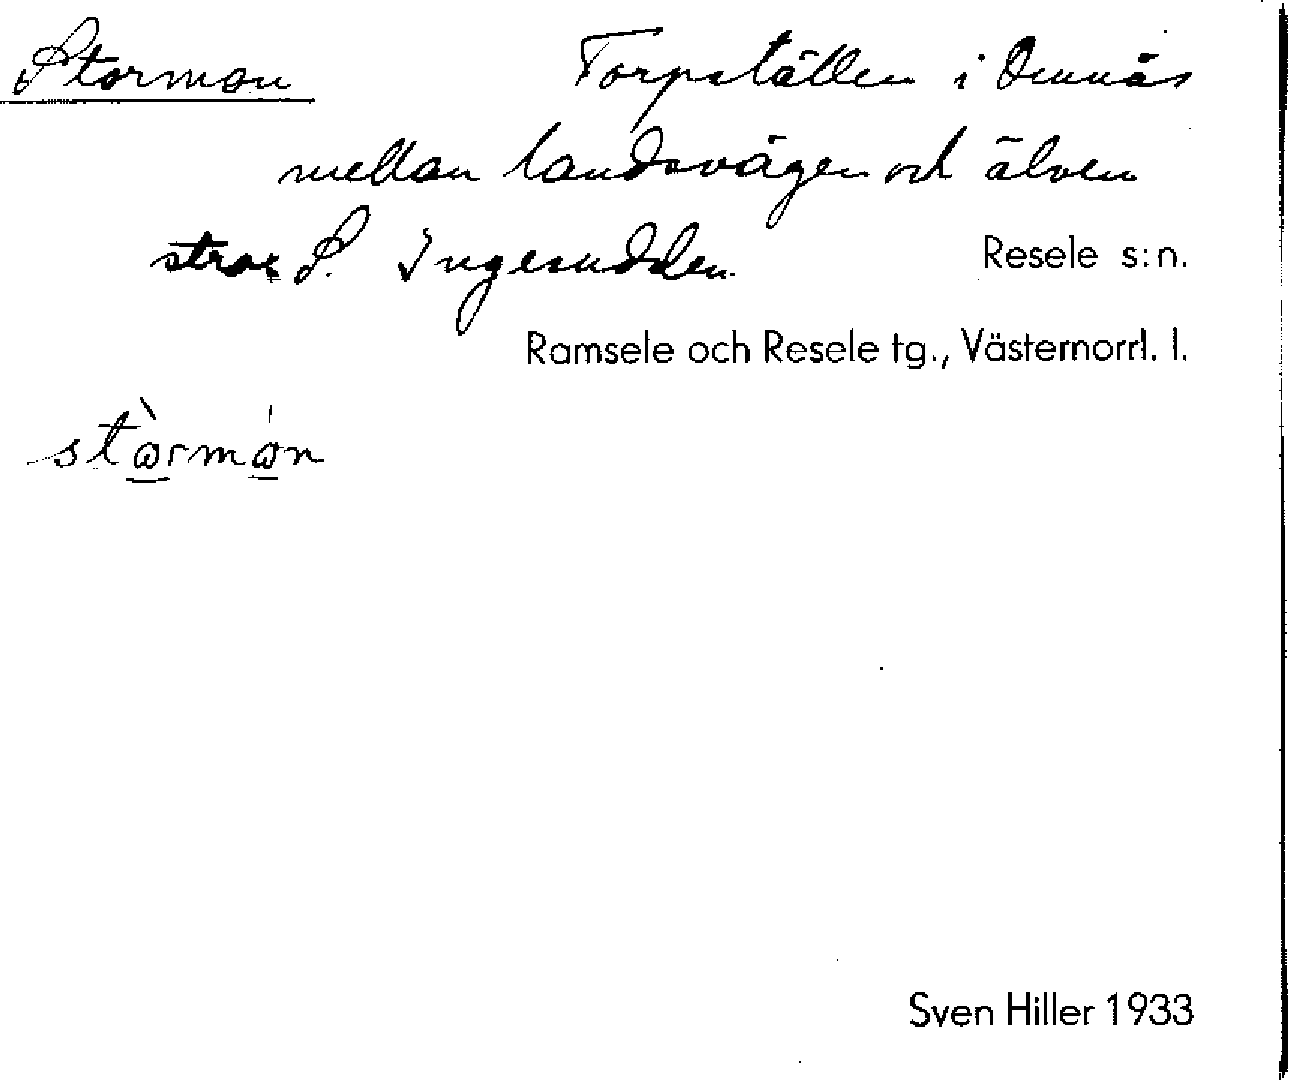 Stormon Torpställen i Omnäs
mellan landsvägen och älven
strax S. Ingesudden. Resele s:n.
Ramsele och Resele tg., Västernorrl. l.
stò̱rmó̱n
Sven Hiller 1933